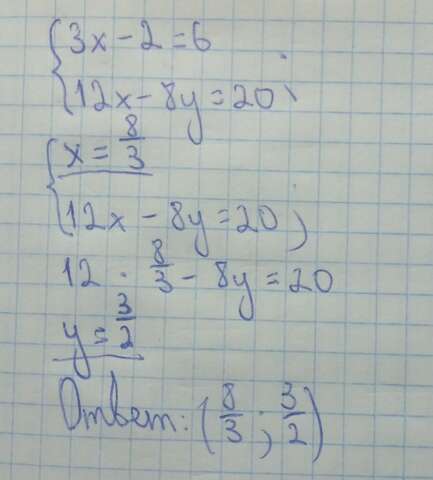 { 3x - 2 = 6
{ 12x - 8y = 20;
{ x = 8/3
{ 12x - 8y = 20;
12 · 8/3 - 8y = 20
y = 3/2
Ответ: (8/3; 3/2)